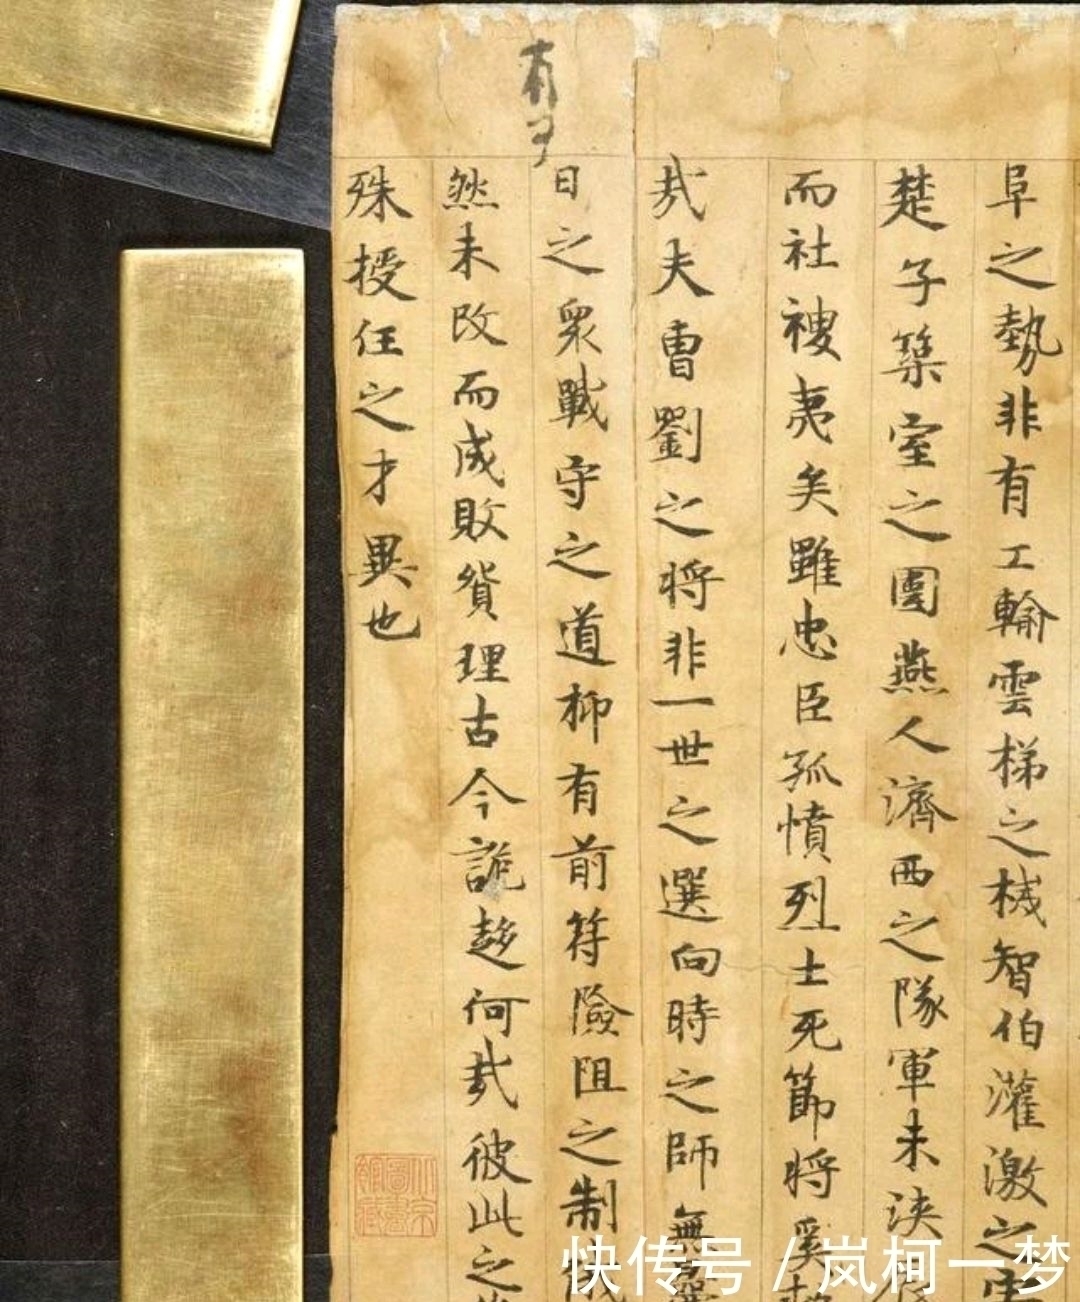 阜之勢非有工輸雲梯之械智伯灌激之害
楚子築室之圍燕人濟西之隊軍未浹
而社稷夷矣雖忠臣孤憤烈士死節將奚救
哉夫曹劉之將非一世之選向時之師無曩
日之衆戰守之道抑有前符險阻之制俄
然未改而成敗貿理古今詭趍何哉彼此之
殊授任之才異也
北京圖書館藏
快传号 / 岚柯一梦